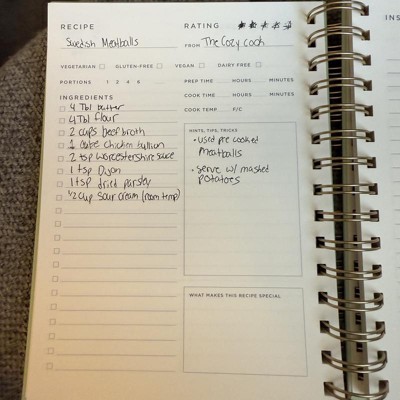 RECIPE
Swedish Meatballs
RATING
FROM The Cozy Cook
VEGETARIAN GLUTEN-FREE VEGAN DAIRY FREE
PORTIONS 1 2 4 6
PREP TIME HOURS MINUTES
COOK TIME HOURS MINUTES
COOK TEMP F/C
INGREDIENTS
4 Tbl butter
4 Tbl flour
2 cups beef broth
1 cube chicken bullion
2 tsp Worcestershire sauce
1 tsp Dijon
1 tsp dried parsley
1/2 cup sour cream (room temp)
HINTS, TIPS, TRICKS
• used pre cooked
meatballs
• serve w/ mashed
potatoes
WHAT MAKES THIS RECIPE SPECIAL
INS